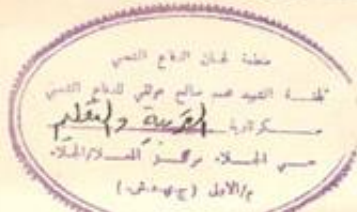 منظمة لجان الدفاع الشعبي
لجنة الشهيد محمد صالح عولقي للدفاع الشعبي
سكرتارية التربية والتعليم
حي الجلاء مركز
م/الاول (ج.ي.د.ش.)